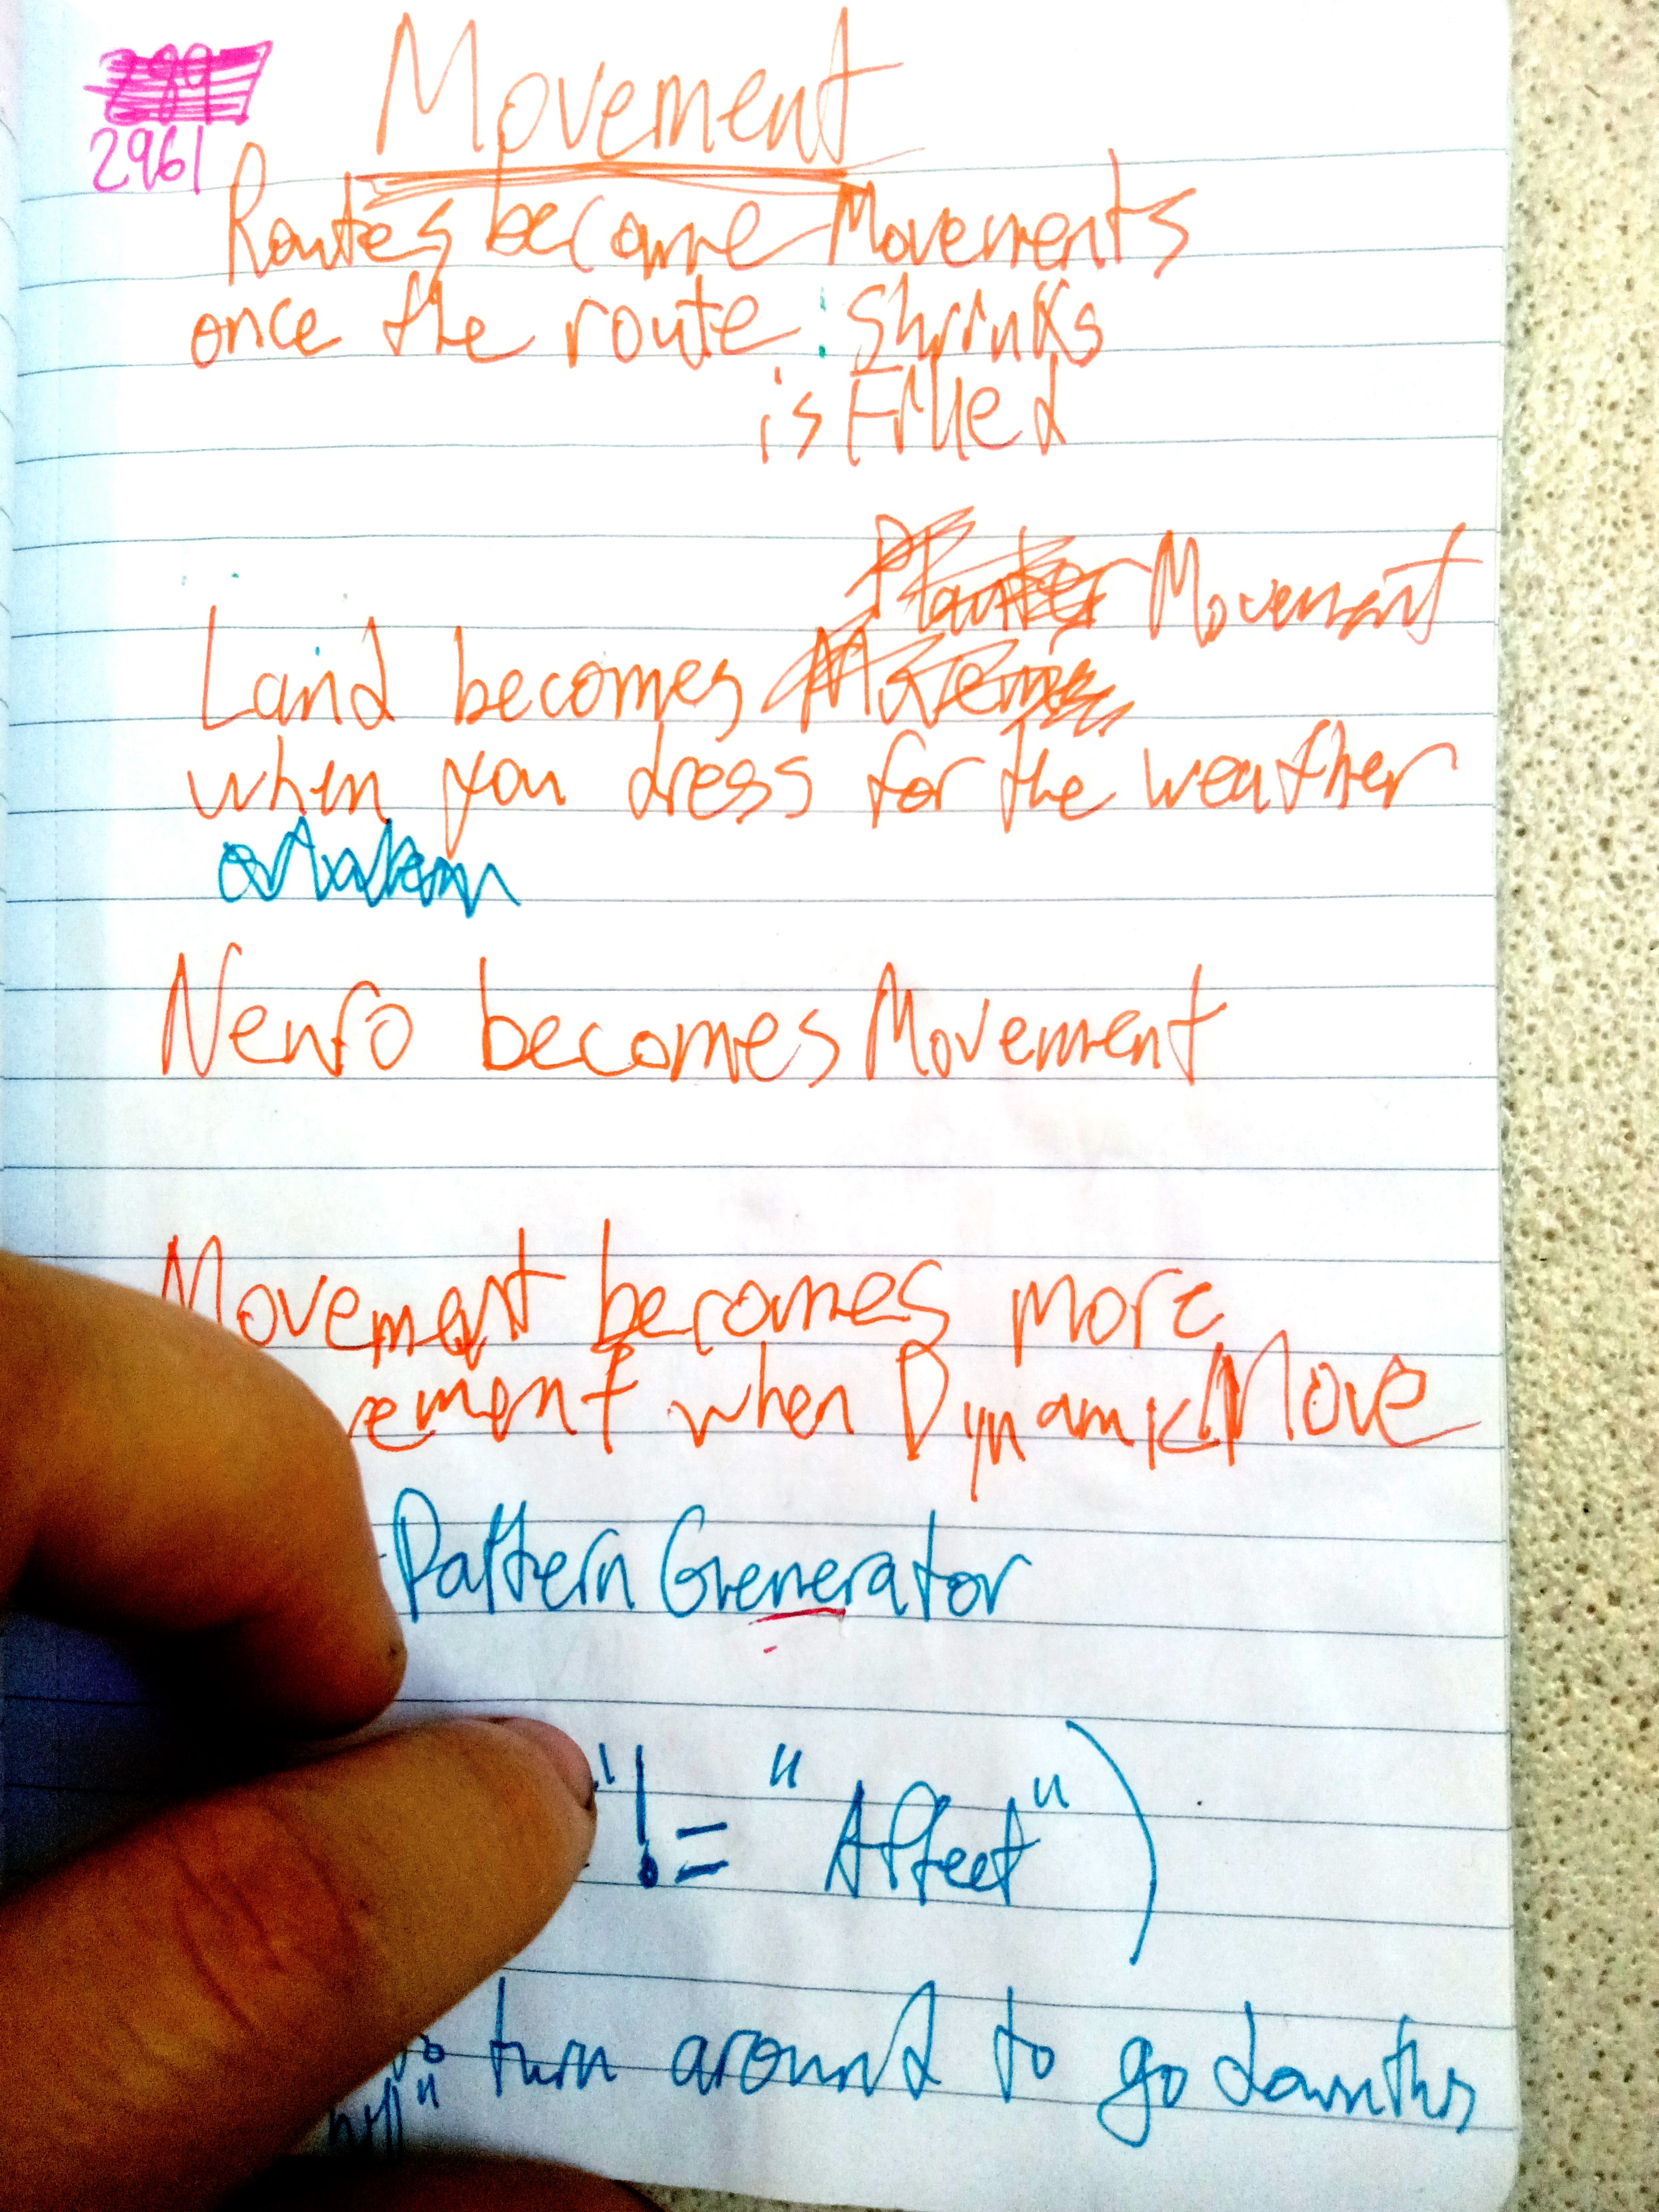 2961
Movement
Routes become Movements
once the route : Shrinks
is Filled
Movement
Land becomes
when you dress for the weather
Neuro becomes Movement
Movement becomes more
ement when Dynamic Move
Pattern Generator
" != "Affect")
turn around to go down this
hill"